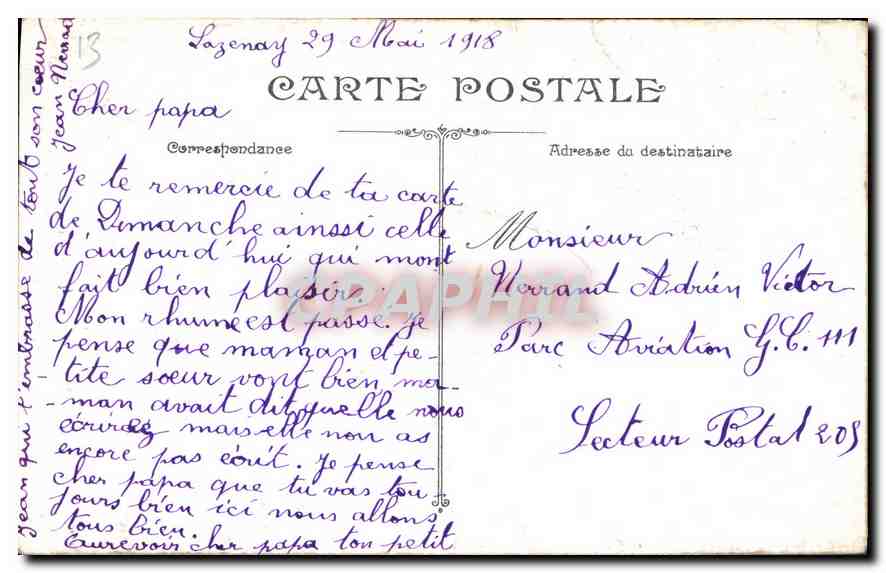 13
Lazenay 29 Mai 1918
CARTE POSTALE
Cher papa
Correspondance
Je te remercie de ta carte
de Dimanche ainssi celle
d'aujourd'hui qui mont
fait bien plaisir.
Mon rhume est passe. Je
pense que maman et pe-
tite soeur vont bien ma-
-man avait dit quelle nous
écrirez mais elle nou as
encore pas écrit. Je pense
cher papa que tu vas tou-
jours bien ici nous allons
tous bien.
Aurevoir cher papa ton petit
Jean qui t'embrasse de tout son coeur
Jean
Adresse du destinataire
Monsieur
Nerrand Adrien Victor
Parc Aviation G.C. 111
Secteur Postal 205
CPAPHIL